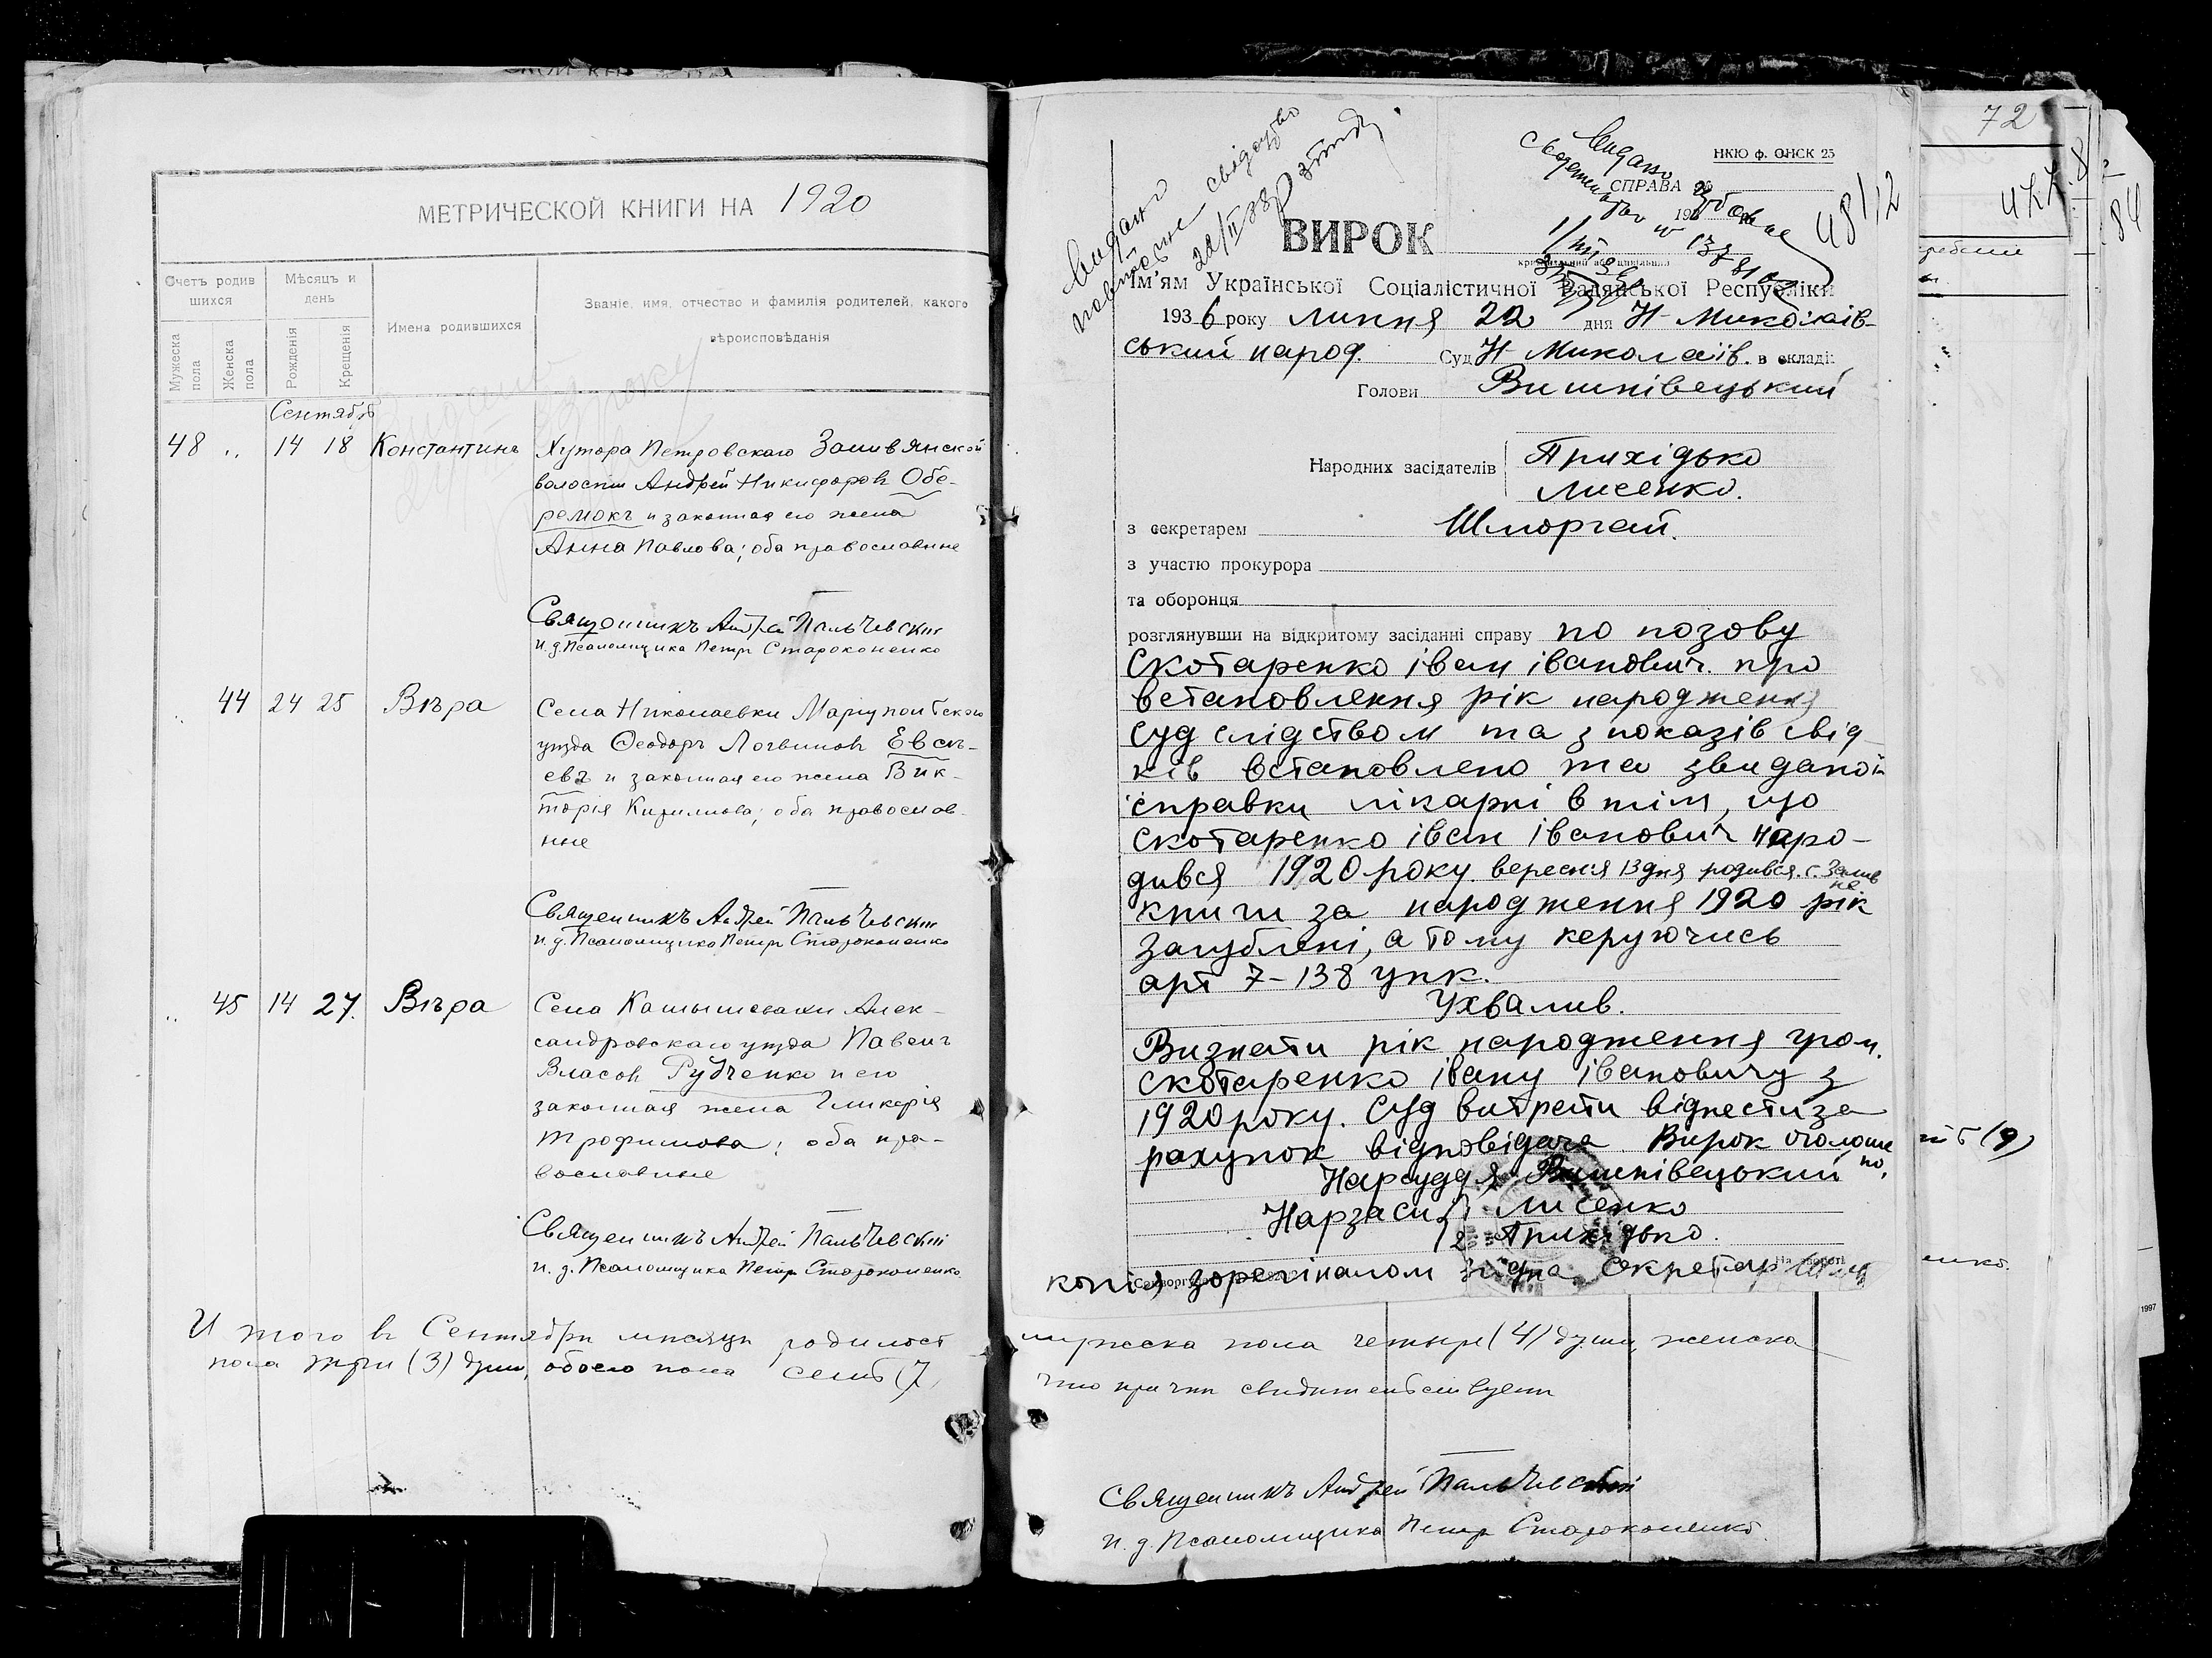 МЕТРИЧЕСКОЙ КНИГИ НА 1920
Счетъ родив
шихся
Мѣсяцъ и
день
Мужеска
пола
Женска
пола
Рожденія
Крещенія
Имена родившихся
Званіе, имя, отчество и фамилія родителей, какого
вѣроисповѣданія
Сентябрь
48 „ 14 18 Константинъ
Хутора Петровскаго Заливянской
волости Андрей Никифоровъ Обе-
ремокъ и законная его жена
Анна Павлова; оба православные
Священникъ Андрей Пальчевскій
и. д. Псаломщика Петръ Староконенко
„ 44 24 25 Вѣра
Села Николаевки Маріупольскаго
уѣзда Ѳеодоръ Логвиновъ Евсѣ-
евъ и законная его жена Вик-
торія Кирилова; оба православ-
ные
Священникъ Андрей Пальчевскій
и. д. Псаломщика Петръ Староконенко
„ 45 14 27. Вѣра
Села Камышевахи Алек-
сандровскаго уѣзда Павелъ
Власовъ Рудченко и его
законная жена Гликерія
Трофимова; оба пра-
вославные
Священникъ Андрей Пальчевскій
и. д. Псаломщика Петръ Староконенко
Итого въ Сентябрѣ мѣсяцѣ родилось
пола три (3) души, обоего пола семь (7)
Видано
повторне свідоцтво
НКЮ ф. ОНСК 25
Видано
СПРАВА №
481/12
ВИРОК
Ім'ям Української Соціалістичної Радянської Республіки
1936 року липня 22 дня Н-Миколаїв-
ський народ. Суд Н-Миколаїв. в складі:
Голови Вишнівецький
Народних засідателів
Прихідько
Лисенко.
з секретарем Шморгай.
з участю прокурора
та оборонця
розглянувши на відкритому засіданні справу по позову
Скотаренко іван іванович. про
встановлення рік народження
Суд слідством та з показів свід-
ків встановлено та з виданой
справки лікарні в тім, що
Скотаренко іван іванович наро-
дився 1920 року. вересня 13 дня родився. с. Залив
не
книги за народження 1920 рік
загублені, а тому керуючись
арт 7-138 упк.
Ухвалив.
Визнати рік народження гром.
Скотаренко івану івановичу з
1920 року. Суд витрати віднести за
рахунок відповідача. Вирок оголоше
но.
Нарсуддя Вишнівецький
Нарзасід 1 Лисенко
2. Прихідько.
копія з орегіналом згідна Секретар
на звороті
мужеска пола четыре (4) души, женска
что причтъ свидѣтельствуетъ
Священникъ Андрей Пальчевскій
и. д. Псаломщика Петръ Староконенко.
72
477
84
1997